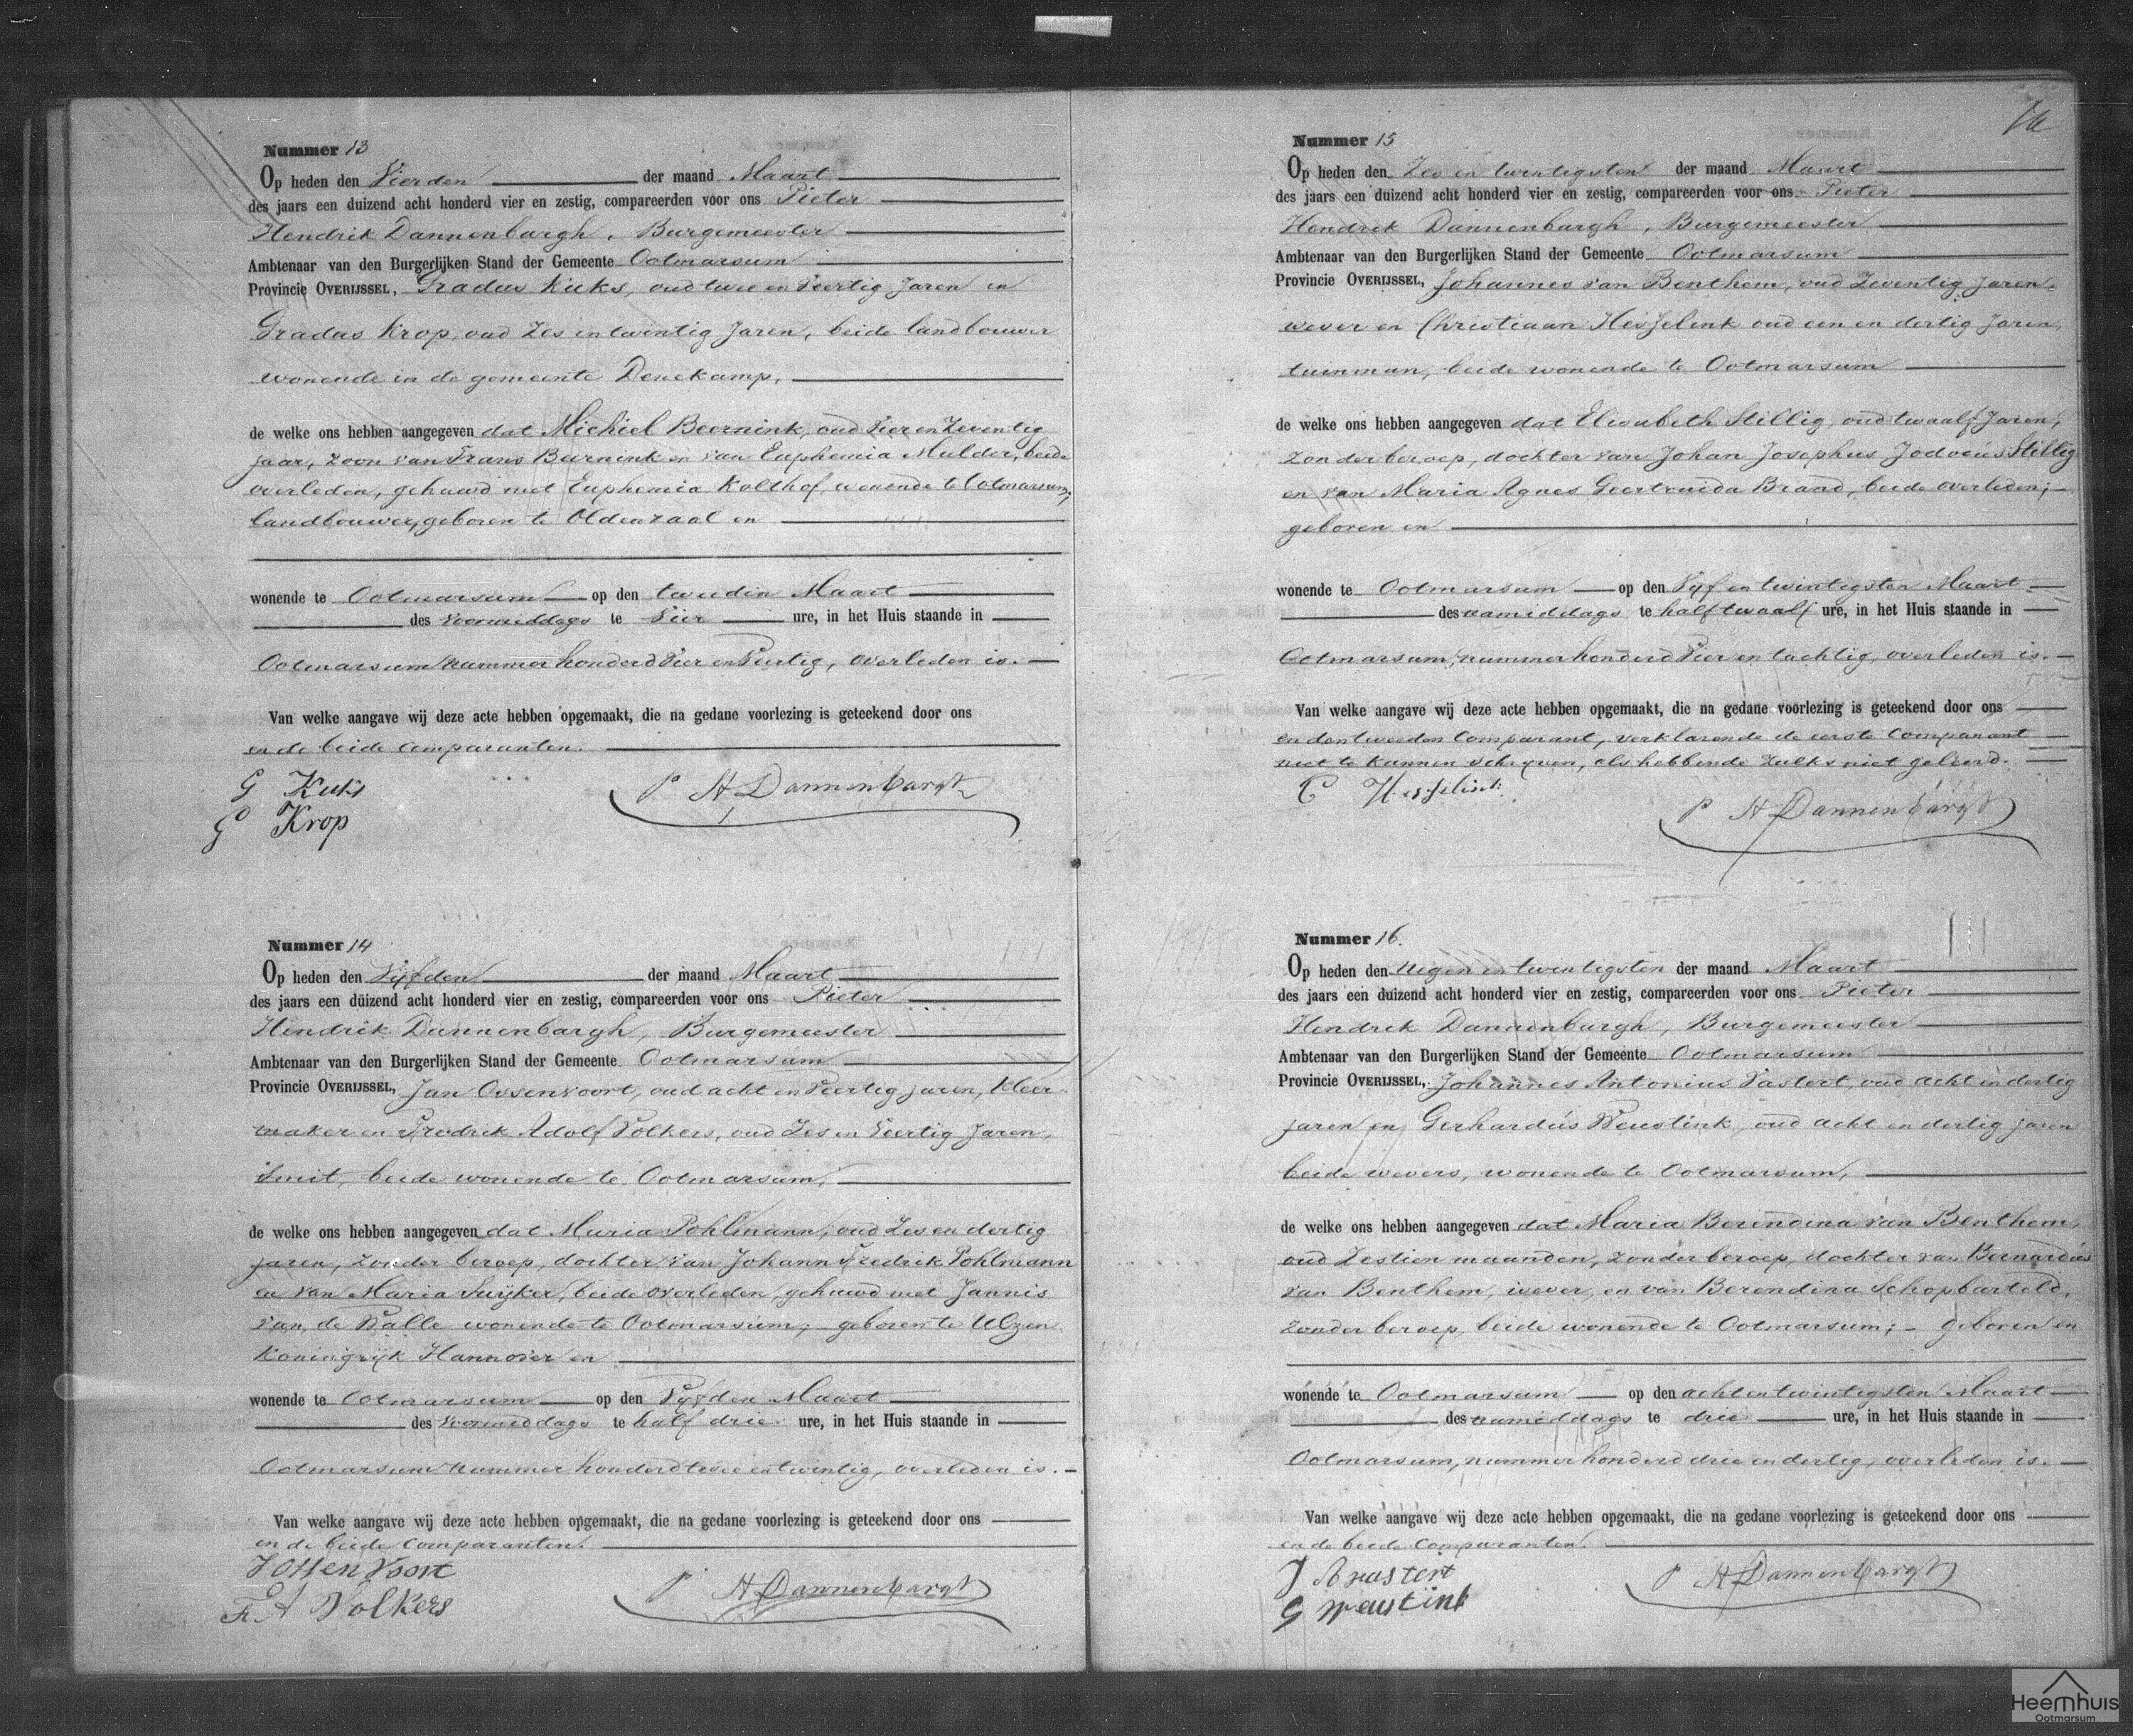 Nummer 13
Op heden den Vierden der maand Maart
des jaars een duizend acht honderd vier en zestig, compareerden voor ons Pieter
Hendrik Dannenbargh, Burgemeester
Ambtenaar van den Burgerlijken Stand der Gemeente Ootmarsum
Provincie OVERIJSSEL, Gradus Kuks, oud twee en Veertig Jaren en
Gradus Krop, oud Zes en twintig Jaren, beide landbouwer
wonende in de gemeente Denekamp,
de welke ons hebben aangegeven dat Michiel Beernink, oud Vier en Zeventig
jaar, zoon van Frans Bernink en van Euphemia Mulder, beide
overleden, gehuwd met Euphemia Kolthof, wonende te Ootmarsum;
landbouwer, geboren te Oldenzaal en
wonende te Ootmarsum op den tweeden Maart
des voormiddags te Vier ure, in het Huis staande in
Ootmarsum nummer honderd Vier en Veertig, overleden is.
Van welke aangave wij deze acte hebben opgemaakt, die na gedane voorlezing is geteekend door ons
en de beide comparanten.
G Kuks
G Krop
P H Dannenbargh
Nummer 14
Op heden den Vijfden der maand Maart
des jaars een duizend acht honderd vier en zestig, compareerden voor ons Pieter
Hendrik Dannenbargh, Burgemeester
Ambtenaar van den Burgerlijken Stand der Gemeente Ootmarsum
Provincie OVERIJSSEL, Jan Ossenvoort, oud acht en Veertig jaren, kleer
maker en Fredrik Adolf Volkers, oud Zes en Veertig Jaren,
Smit, beide wonende te Ootmarsum,
de welke ons hebben aangegeven dat Maria Pohlmann, oud Zes en dertig
jaren, zonder beroep, dochter van Johann Fredrik Pohlmann
en van Maria Suijker, beide overleden, gehuwd met Jannis
van de Walle wonende te Ootmarsum; geboren te Ulzen
Koningrijk Hannover en
wonende te Ootmarsum op den Vijfden Maart
des Voormiddags te half drie ure, in het Huis staande in
Ootmarsum nummer honderd twee en twintig, overleden is.
Van welke aangave wij deze acte hebben opgemaakt, die na gedane voorlezing is geteekend door ons
en de beide Comparanten.
J Ossenvoort
F. A Volkers
P H Dannenbargh
Nummer 15
Op heden den Zes en twintigsten der maand Maart
des jaars een duizend acht honderd vier en zestig, compareerden voor ons Pieter
Hendrik Dannenbargh, Burgemeester
Ambtenaar van den Burgerlijken Stand der Gemeente Ootmarsum
Provincie OVERIJSSEL, Johannes van Benthem, oud Zeventig jaren,
wever en Christiaan Hesselink oud een en dertig Jaren,
tuinman, beide wonende te Ootmarsum
de welke ons hebben aangegeven dat Elisabeth Stillig, oud twaalf Jaren,
zonder beroep, dochter van Johan Josephus Jodocus Stillig
en van Maria Agnes Geertruida Brand, beide overleden;
geboren en
wonende te Ootmarsum op den Vijf en twintigsten Maart
des namiddags te half twaalf ure, in het Huis staande in
Ootmarsum, nummer honderd Vier en tachtig, overleden is.
Van welke aangave wij deze acte hebben opgemaakt, die na gedane voorlezing is geteekend door ons
en den tweeden Comparant, verklarende de eerste Comparant
niet te kunnen schrijven, als hebbende zulks niet geleerd.
C Hesselink
P H Dannenbargh
Nummer 16.
Op heden den negen en twintigsten der maand Maart
des jaars een duizend acht honderd vier en zestig, compareerden voor ons Pieter
Hendrik Dannenbargh, Burgemeester
Ambtenaar van den Burgerlijken Stand der Gemeente Ootmarsum
Provincie OVERIJSSEL, Johannes Antonius Vastert, oud acht en dertig
jaren en Gerhardus Weustink, oud acht en dertig jaren
beide wevers, wonende te Ootmarsum,
de welke ons hebben aangegeven dat Maria Berendina van Benthem,
oud Zestien maanden, zonder beroep, dochter van Bernardus
van Benthem, wever, en van Berendina Schopbarteld,
zonder beroep, beide wonende te Ootmarsum; geboren en
wonende te Ootmarsum op den acht en twintigsten Maart
des namiddags te drie ure, in het Huis staande in
Ootmarsum, nummer honderd drie en dertig, overleden is.
Van welke aangave wij deze acte hebben opgemaakt, die na gedane voorlezing is geteekend door ons
en de beide Comparanten.
J A Vastert
G Weustink
P H Dannenbargh
Heemhuis
Ootmarsum